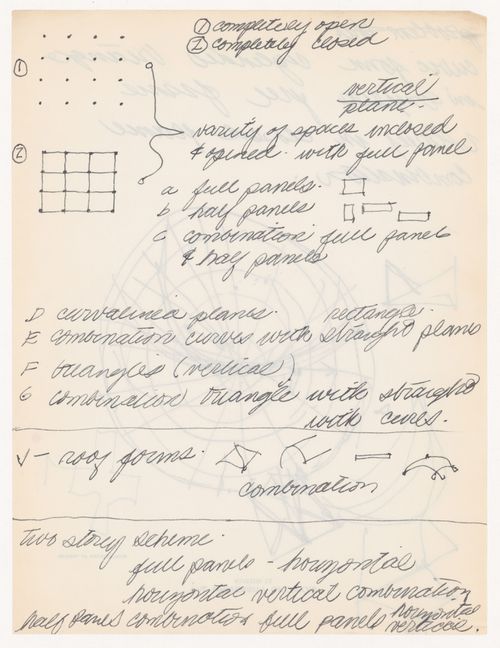 ① completely open
② completely closed
①
vertical
plane.
variety of spaces inclosed
② & opened. with full panel
a full panels.
b half panels
c combination full panels
& half panels
D curvalinea planes. rectangle.
E combination curves with straight planes
F triangles (vertical)
G combination triangle with straight
with curves.
√ - roof forms.
combination
two storey scheme.
full panels - horizontal
horizontal vertical combination
half panels combination full panels horizontal
vertical.